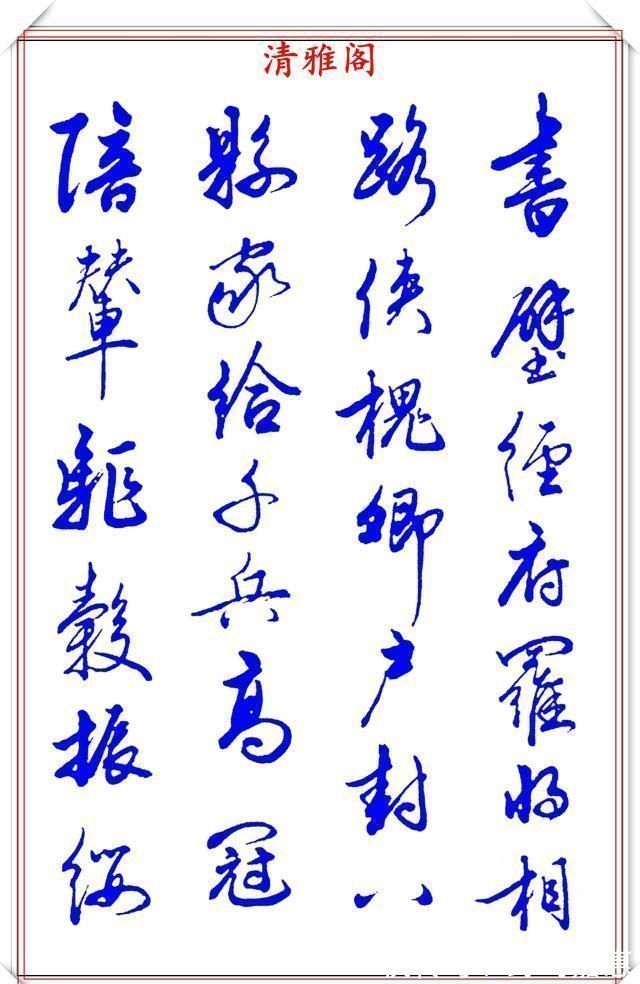 清雅阁
書壁經府羅將相
路俠槐卿户封八
縣家給千兵高冠
陪輦驅轂振纓